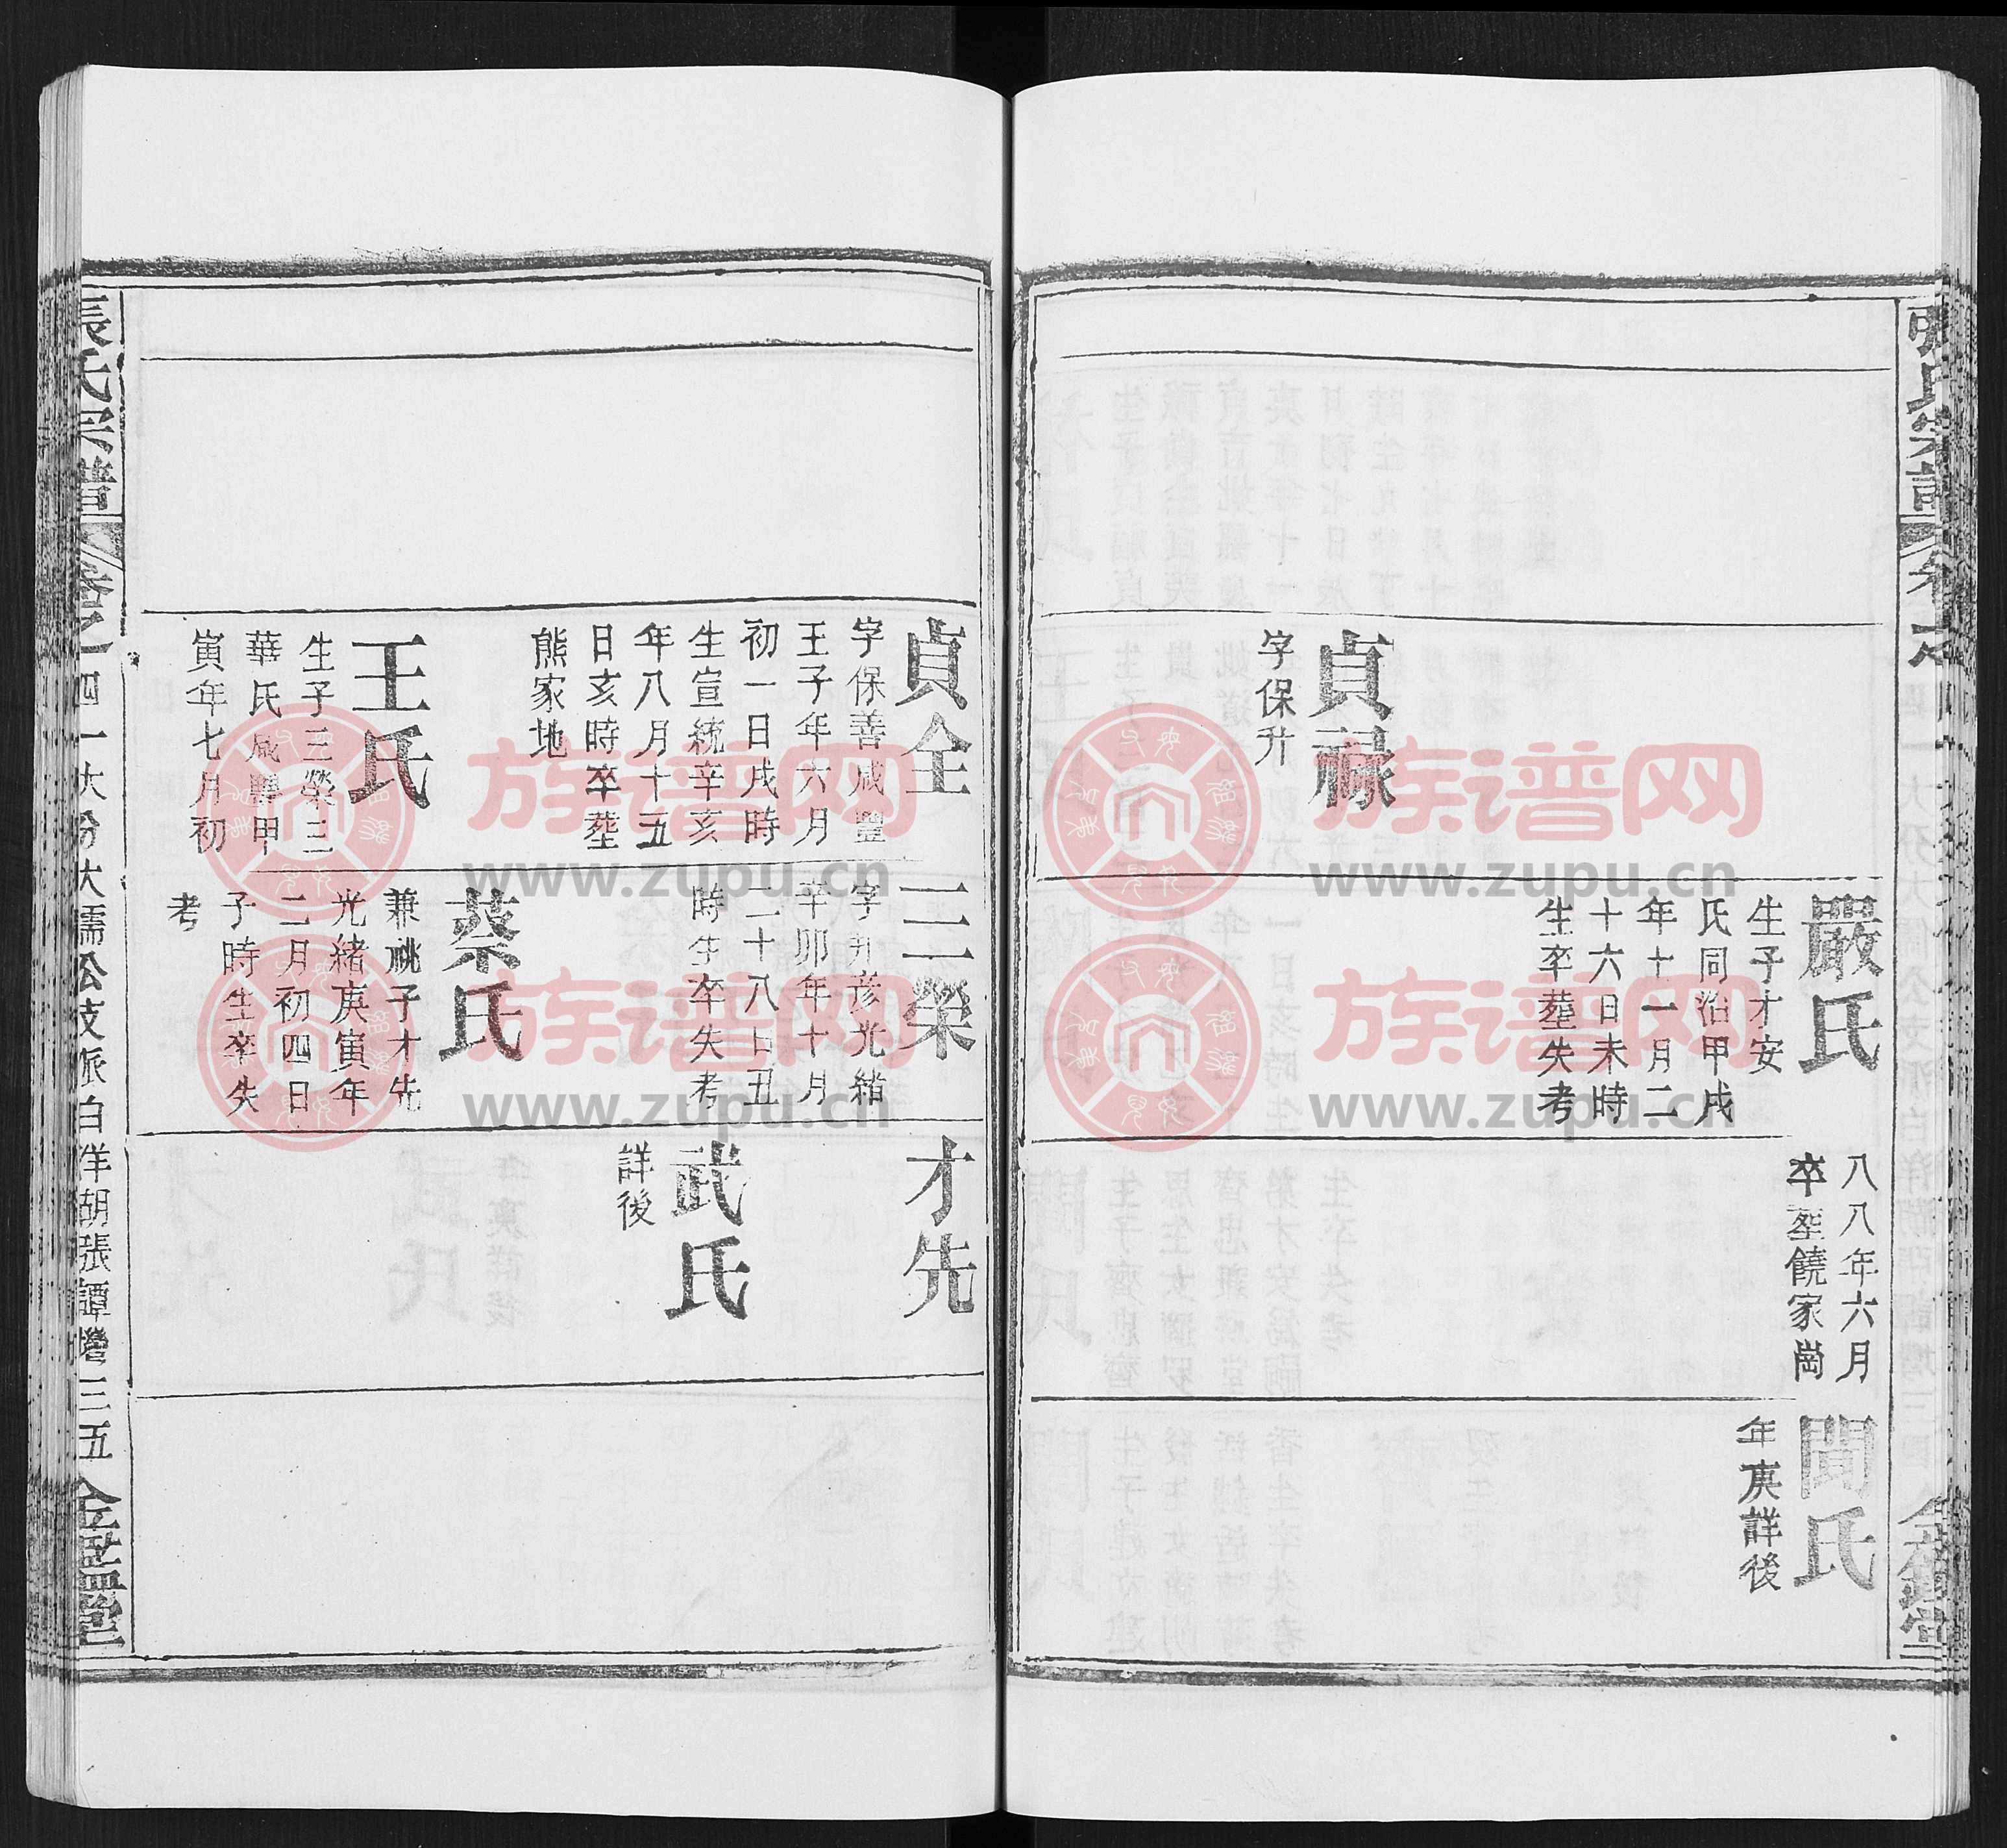 貞禄
字保升
嚴氏
生子才安
氏同治甲戌
年十一月二
十六日未時
生卒塟失考
八八年六月
卒塟饒家崗
閻氏
年庚詳後
金鑑堂
貞全
字保善咸豐
王子年六月
初一日戌時
生宣統辛亥
年八月十五
日亥時卒塟
熊家地
王氏
生子三榮三
華氏咸豐甲
寅年七月初
三榮
字升彦光緒
辛卯年十月
二十八日丑
時生卒失考
蔡氏
兼祧子才先
光緒庚寅年
二月初四日
子時生卒失
考
才先
武氏
詳後
張氏宗譜
卷之四一大分大儒公支派白洋湖張譚灣三五
金鑑堂
族谱网
www.zupu.cn
族谱网
www.zupu.cn
族谱网
www.zupu.cn
族谱网
www.zupu.cn